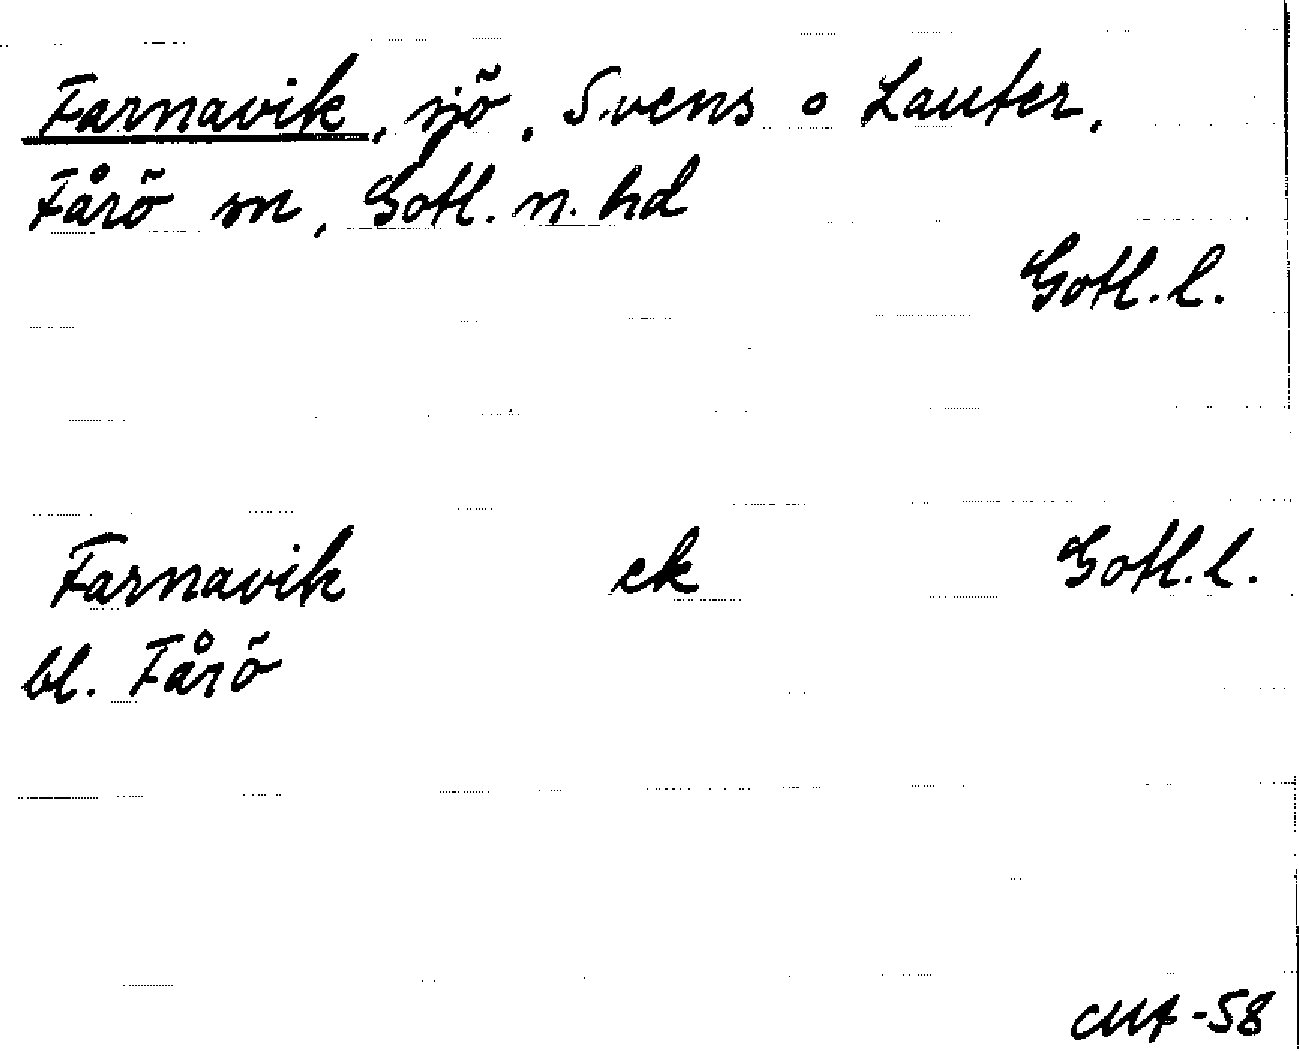 Farnavik, sjö, Svens o Lauter,
Fårö sn, Gotl. n. hd
Gotl. l.
Farnavik ek Gotl. l.
bl. Fårö
CMA-58